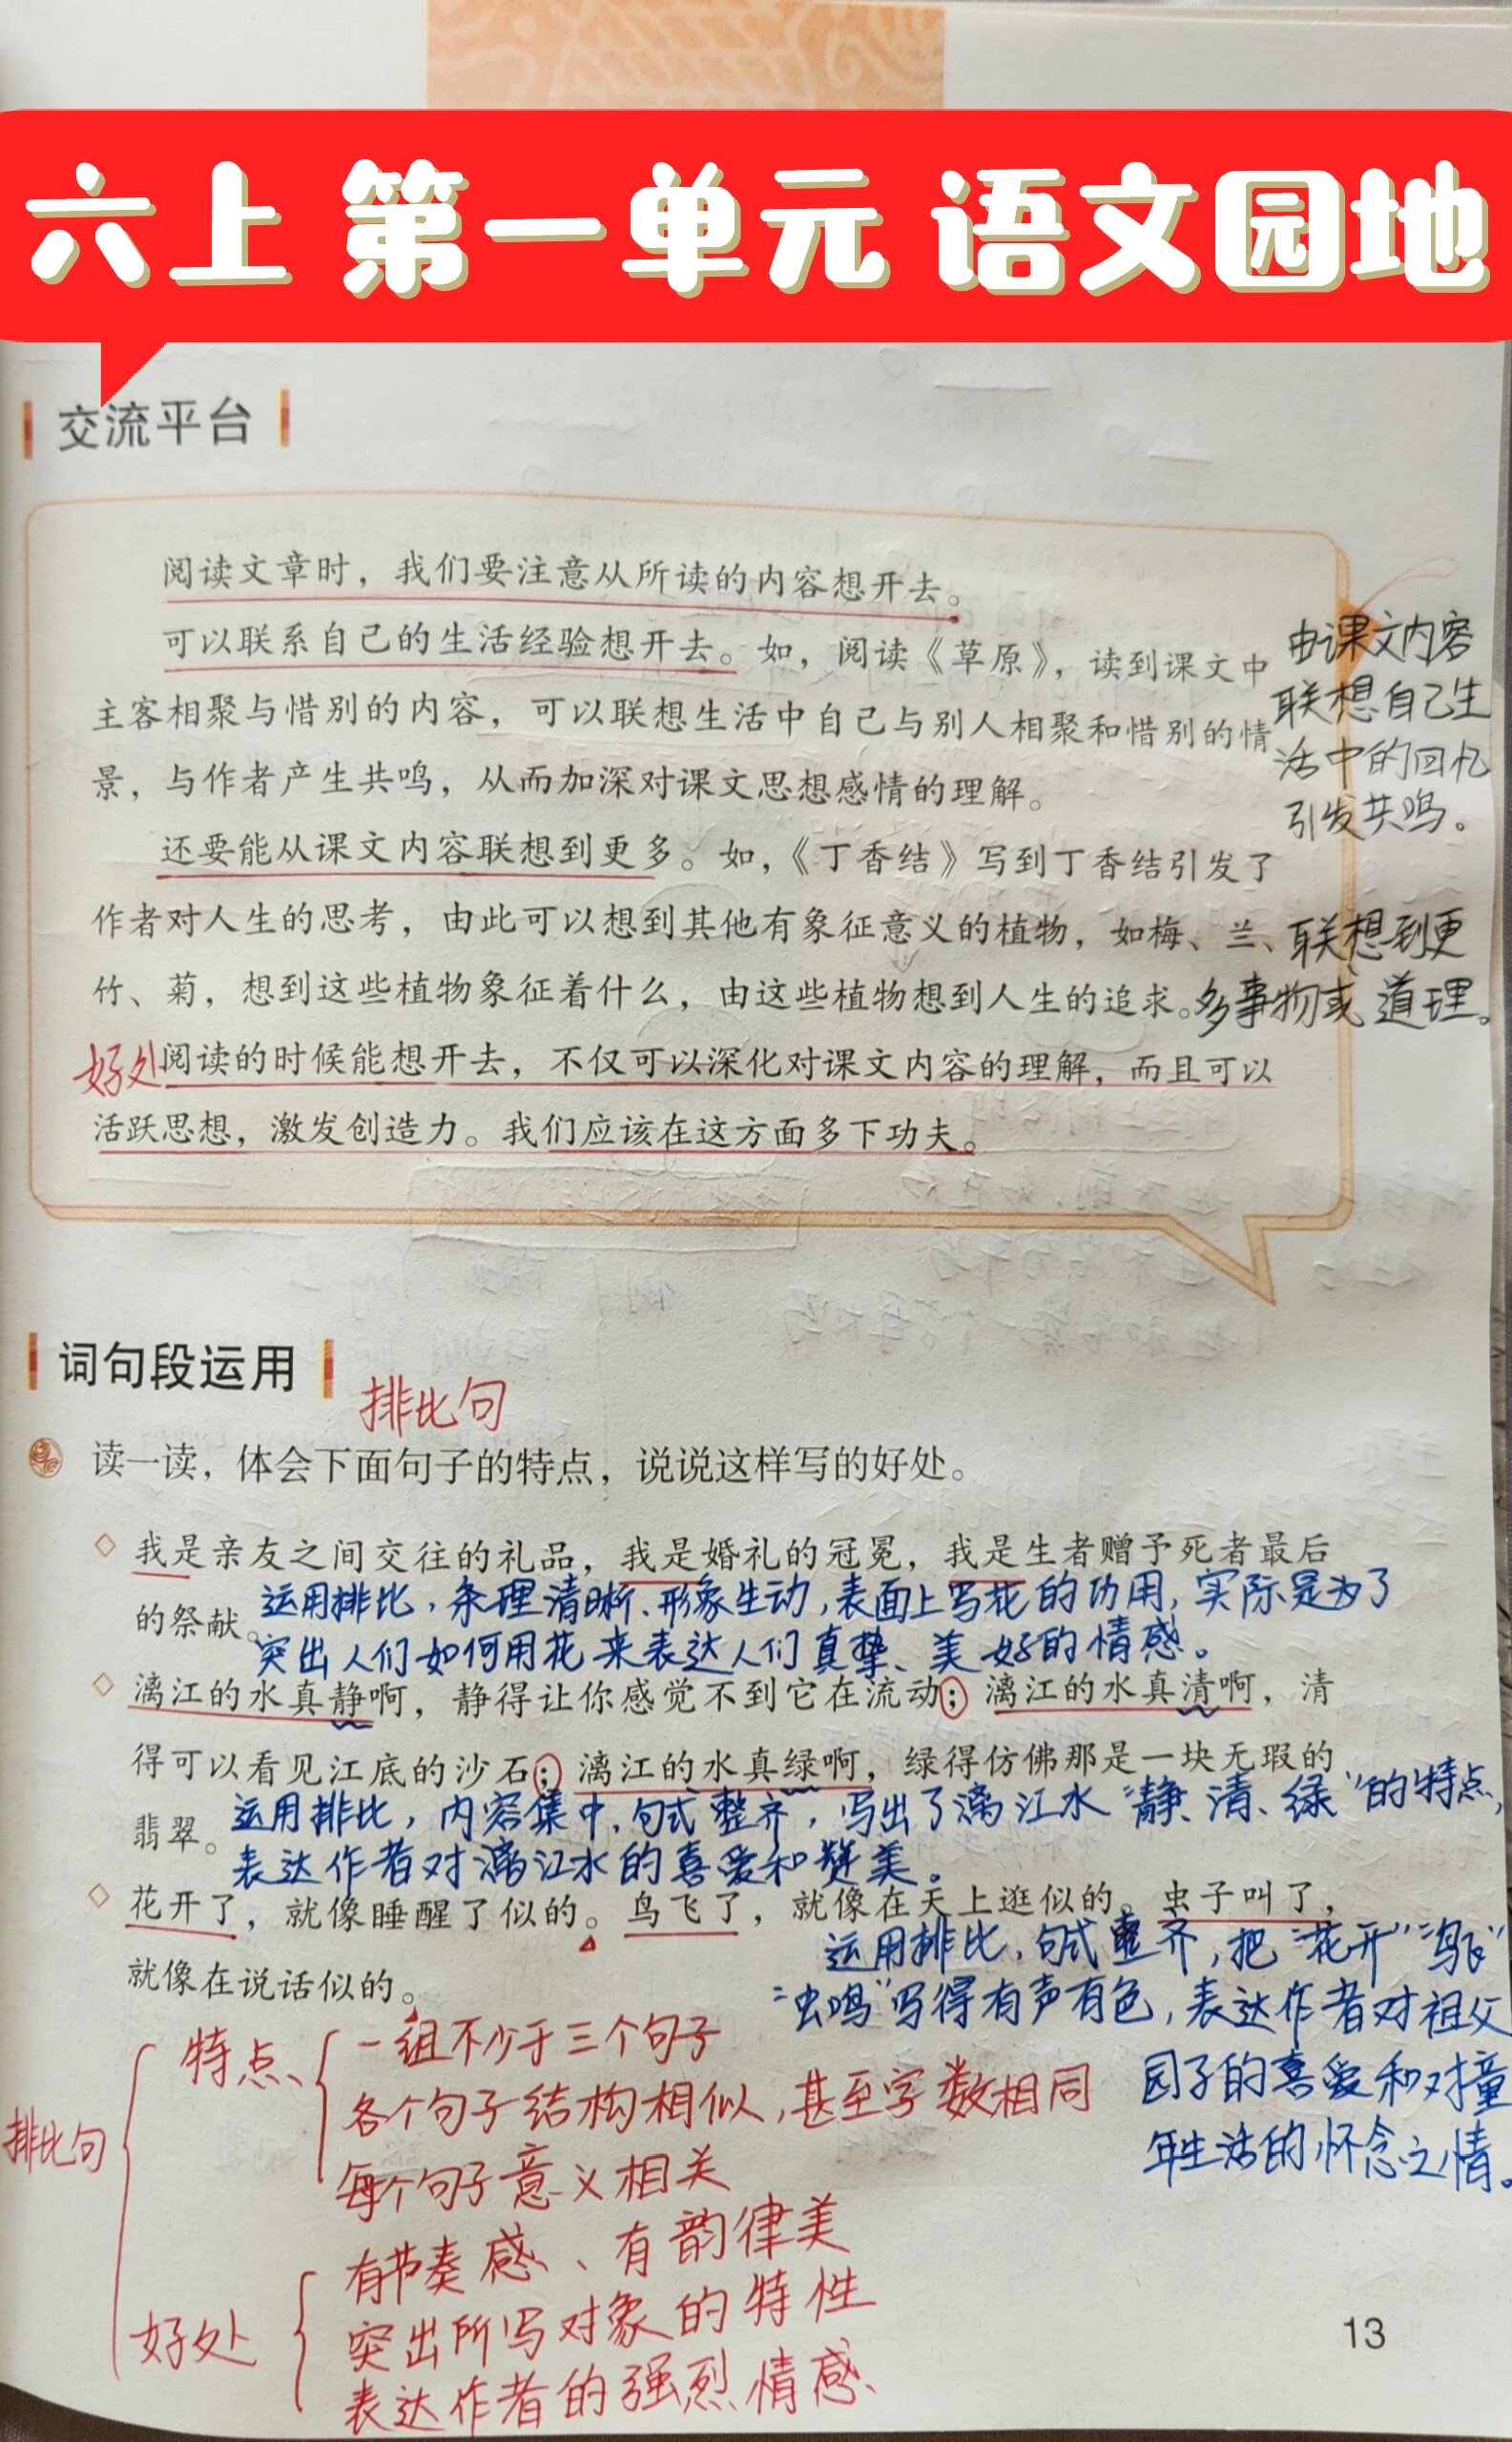 六上 第一单元 语文园地
交流平台
阅读文章时，我们要注意从所读的内容想开去。
可以联系自己的生活经验想开去。如，阅读《草原》，读到课文中
主客相聚与惜别的内容，可以联想生活中自己与别人相聚和惜别的情
景，与作者产生共鸣，从而加深对课文思想感情的理解。
由课文内容
联想自己生
活中的回忆
引发共鸣。
还要能从课文内容联想到更多。如，《丁香结》写到丁香结引发了
作者对人生的思考，由此可以想到其他有象征意义的植物，如梅、兰、
竹、菊，想到这些植物象征着什么，由这些植物想到人生的追求。
联想到更
多事物或道理。
好处
阅读的时候能想开去，不仅可以深化对课文内容的理解，而且可以
活跃思想，激发创造力。我们应该在这方面多下功夫。
词句段运用
排比句
读一读，体会下面句子的特点，说说这样写的好处。
我是亲友之间交往的礼品，我是婚礼的冠冕，我是生者赠予死者最后
的祭献。
运用排比，条理清晰、形象生动，表面上写花的功用，实际是为了
突出人们如何用花来表达人们真挚、美好的情感。
漓江的水真静啊，静得让你感觉不到它在流动；漓江的水真清啊，清
得可以看见江底的沙石；漓江的水真绿啊，绿得仿佛那是一块无瑕的
翡翠。
运用排比，内容集中、句式整齐，写出了漓江水“静、清、绿”的特点，
表达作者对漓江水的喜爱和赞美。
花开了，就像睡醒了似的。鸟飞了，就像在天上逛似的。虫子叫了，
就像在说话似的。
运用排比，句式整齐，把“花开”“鸟飞”
“虫鸣”写得有声有色，表达作者对祖父
园子的喜爱和对童
年生活的怀念之情。
排比句
特点
一组不少于三个句子
各个句子结构相似，甚至字数相同
每个句子意义相关
好处
有节奏感、有韵律美
突出所写对象的特性
表达作者的强烈情感
13